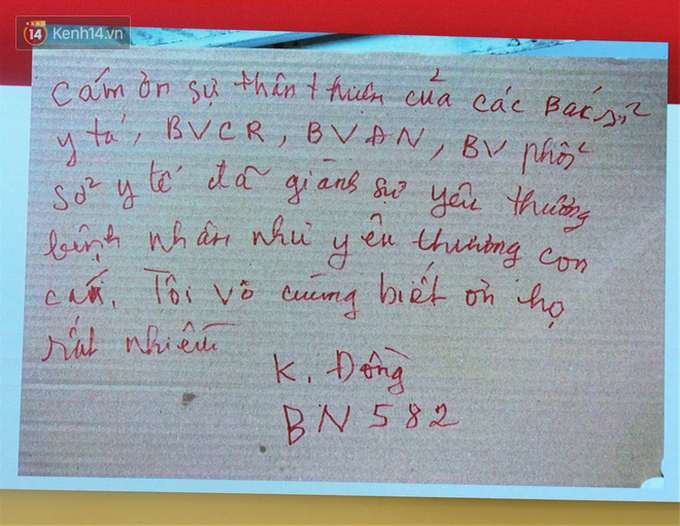 KENH 14 Kenh14.vn
Cám ơn sự thân thiện của các Bác sĩ
y tá, BVCR, BVAN, BV phổi
sở y tế đã giành sự yêu thương
bệnh nhân như yêu thương con
cái. Tôi vô cùng biết ơn họ
rất nhiều
K. Đồng
BN 582